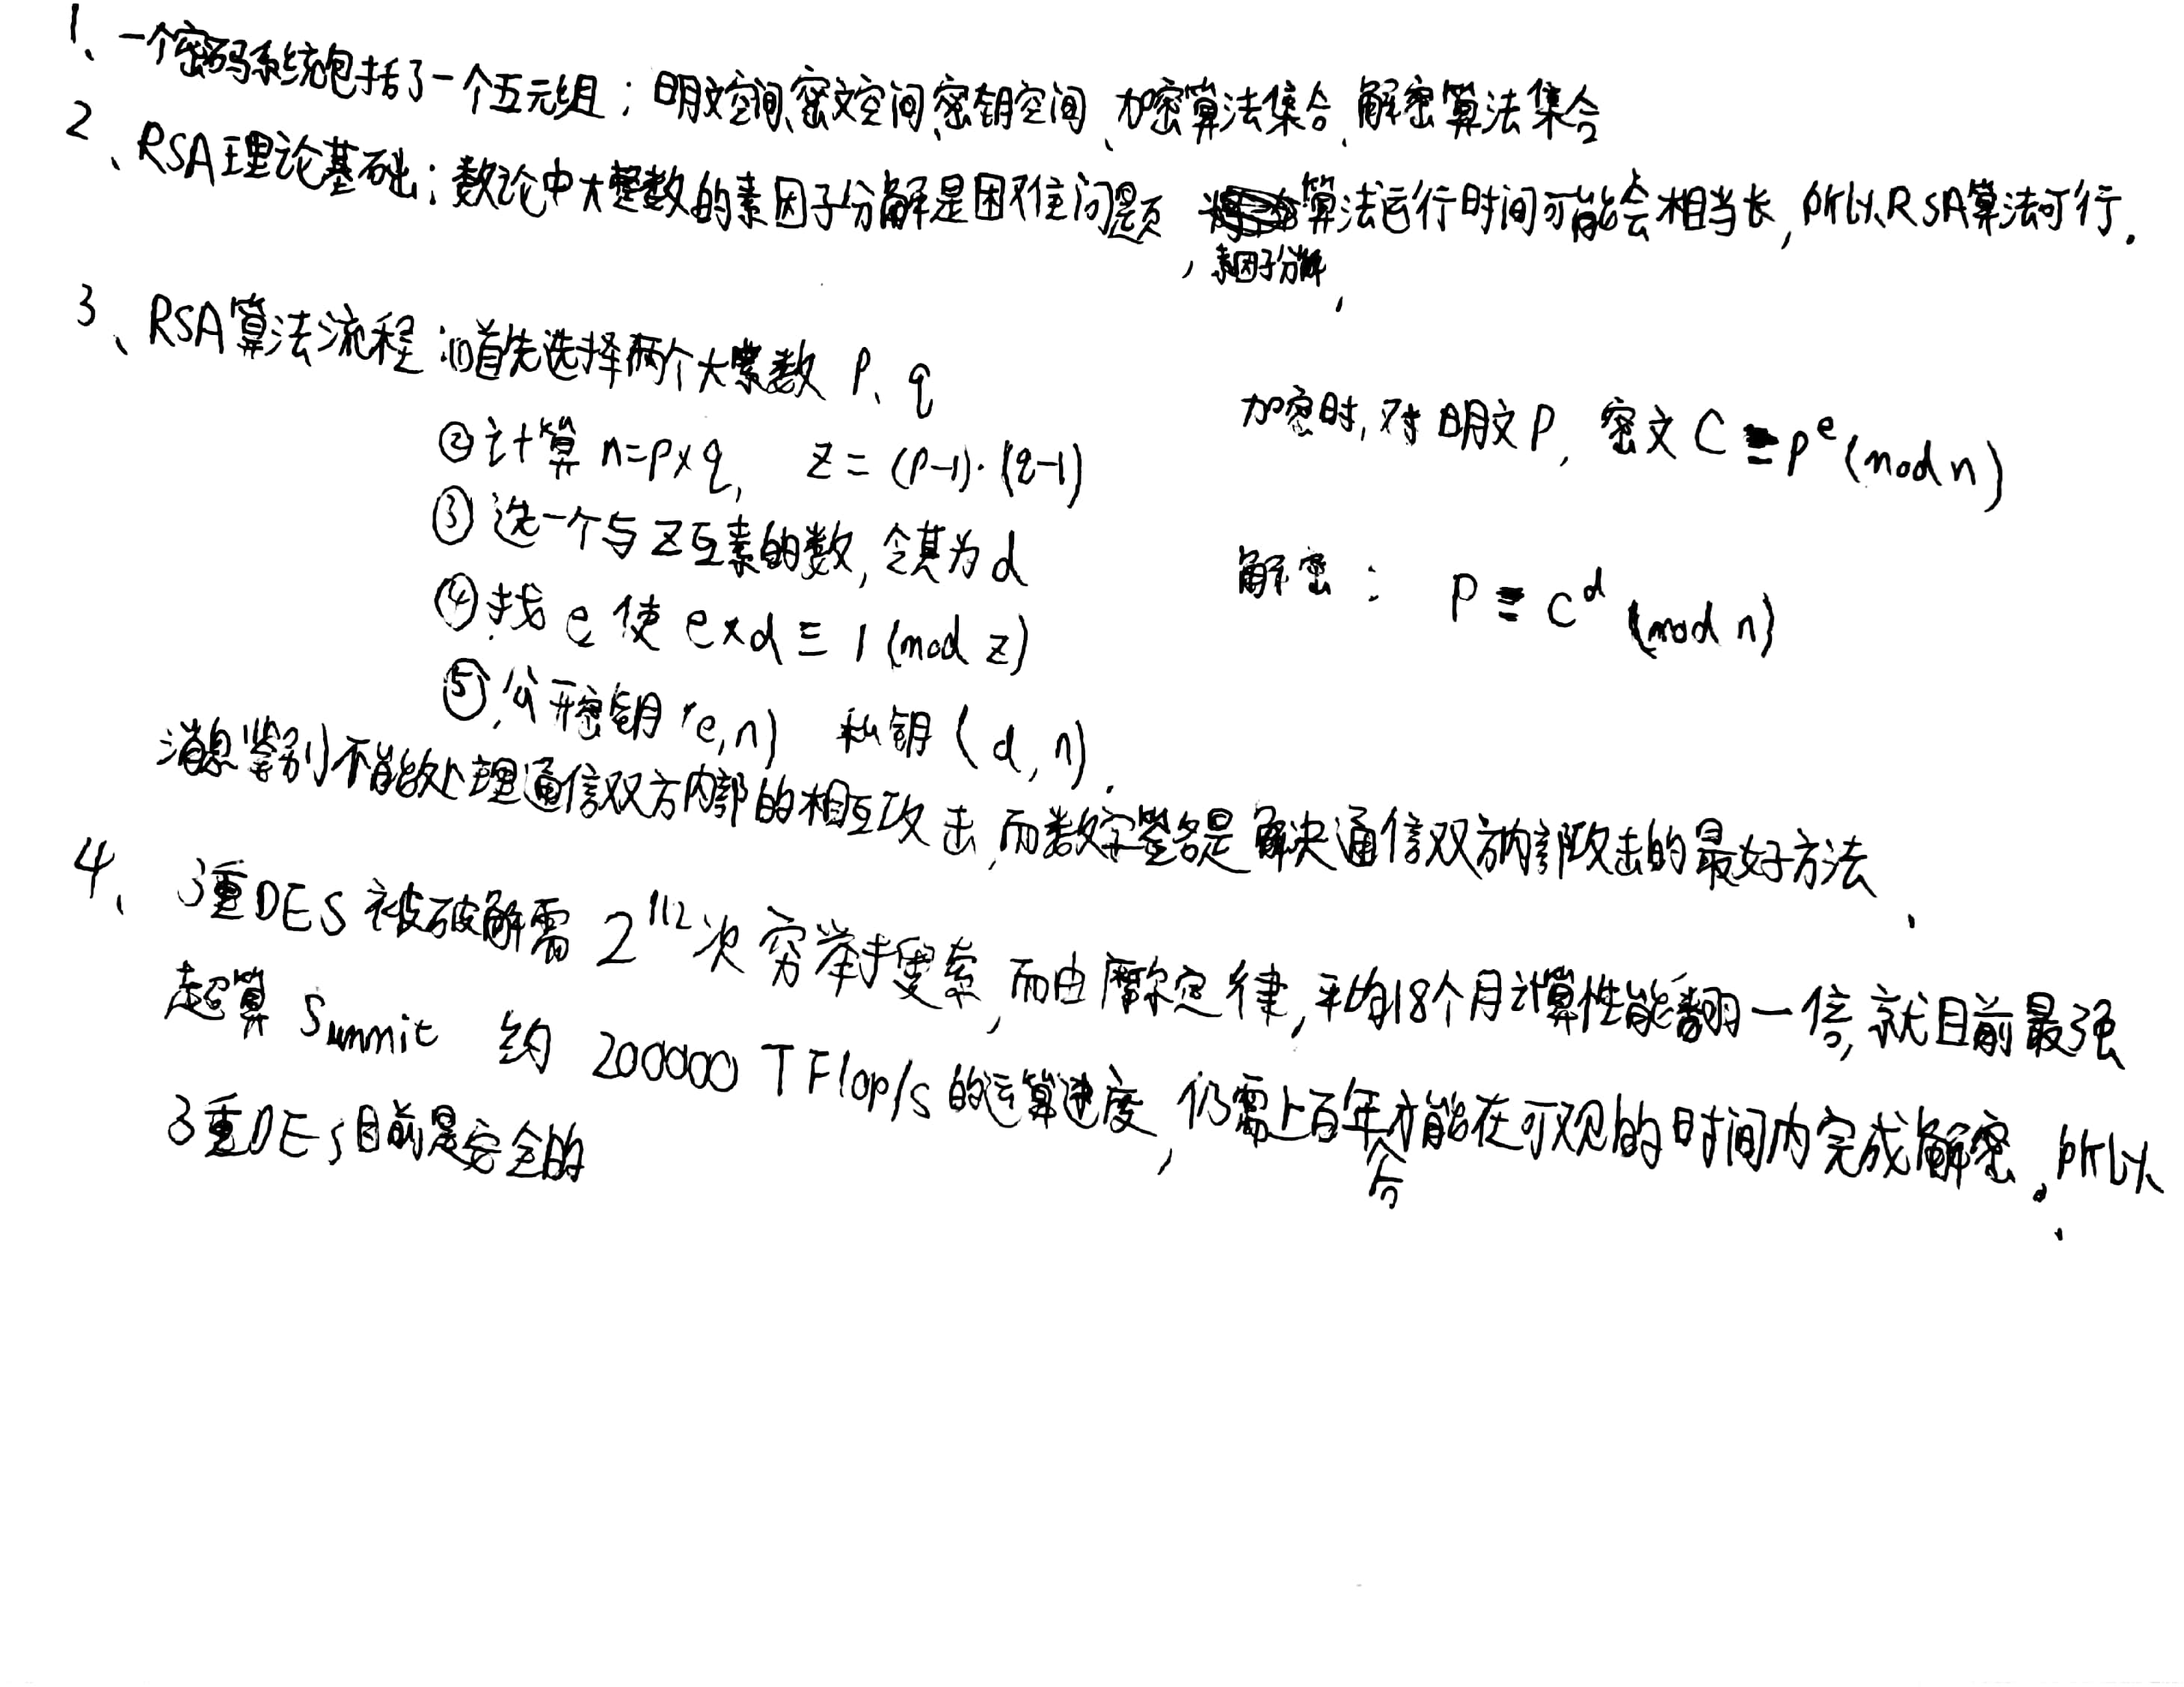 1、一个密码系统包括了一个五元组：明文空间、密文空间、密钥空间、加密算法集合、解密算法集合
2、RSA理论基础：数论中大整数的素因子分解是困难问题，素因子分解算法运行时间可能会相当长，所以RSA算法可行.
3、RSA算法流程：①首先选择两个大素数 p、q
②计算 n=p×q, z=(p-1)·(q-1)
③选一个与z互素的数,令其为d
④找e使 e×d≡1(mod z)
⑤公开密钥(e,n) 私钥(d,n).
加密时,对明文P,密文C≡P^e(mod n)
解密： P≡C^d(mod n)
消息鉴别不能处理通信双方内部的相互攻击,而数字签名是解决通信双方内部攻击的最好方法.
4、3重DES被破解需2^112次穷举搜索,而由摩尔定律,平均18个月计算性能翻一倍,就目前最强
超算Summit 约200000TFlop/s的运算速度,仍需上百年才能在可观的时间内完成解密。所以
3重DES目前是安全的.